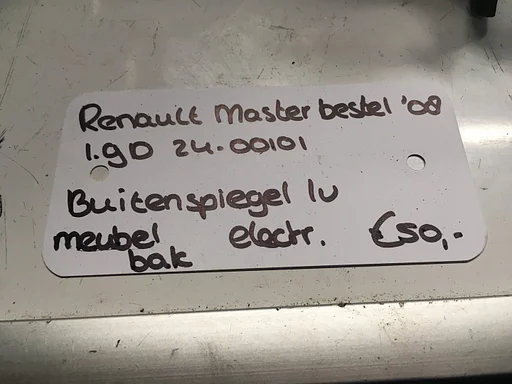 Renault Master bestel '08
1.9D 24.00101
Buitenspiegel lv
meubel electr. €50,-
bak